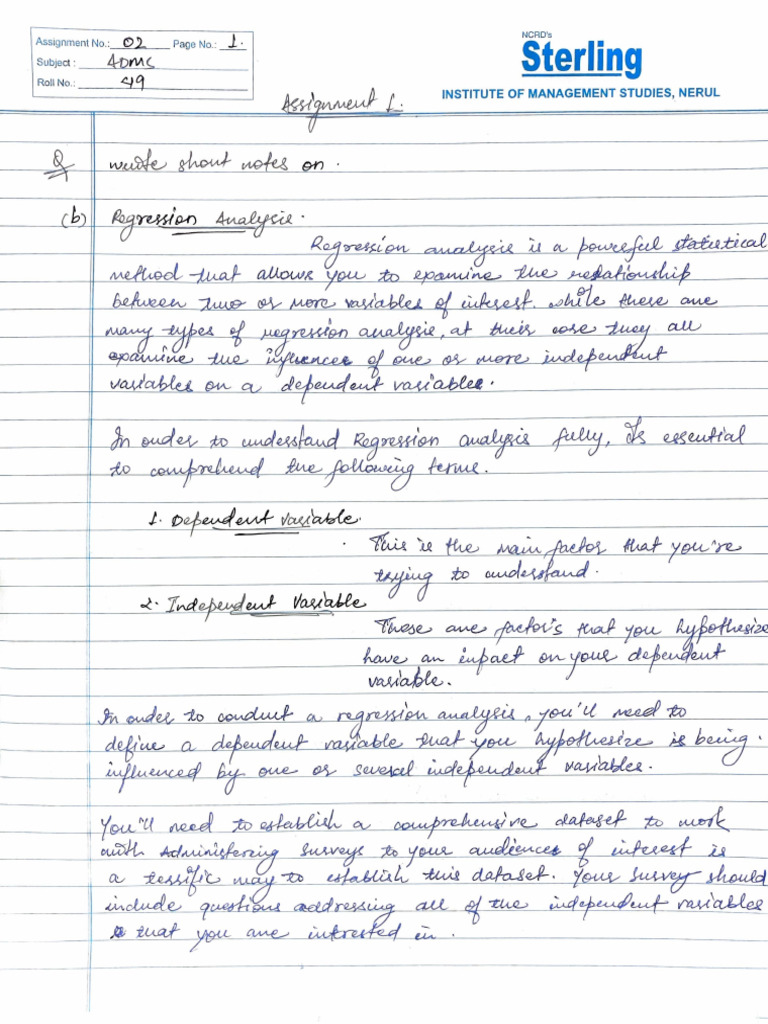 Assignment No.: 02 Page No.: 1.
Subject : ADMC
Roll No.: 49
NCRD's
Sterling
INSTITUTE OF MANAGEMENT STUDIES, NERUL
Assignment 1.
Q1 write short notes on .
(b) Regression Analysis.
Regression analysis is a powerful statistical
method that allows you to examine the relationship
between two or more variables of interest. while there are
many types of regression analysis, at their core they all
examine the influence of one or more independent
variables on a dependent variable.
In order to understand Regression analysis fully, Its essential
to comprehend the following terms.
1. Dependent variable.
This is the main factor that you're
trying to understand.
2. Independent Variable
These are factor's that you hypothesize
have an inpact on your dependent
variable.
In order to conduct a regression analysis, you'll need to
define a dependent variable that you hypothesize is being.
influenced by one or several independent variables.
You'll need to establish a comprehensive dataset to work
with Administering surveys to your audiences of interest is
a terrific way to establish this dataset. Your survey should
include questions addressing all of the independent variables
that you are interested in .